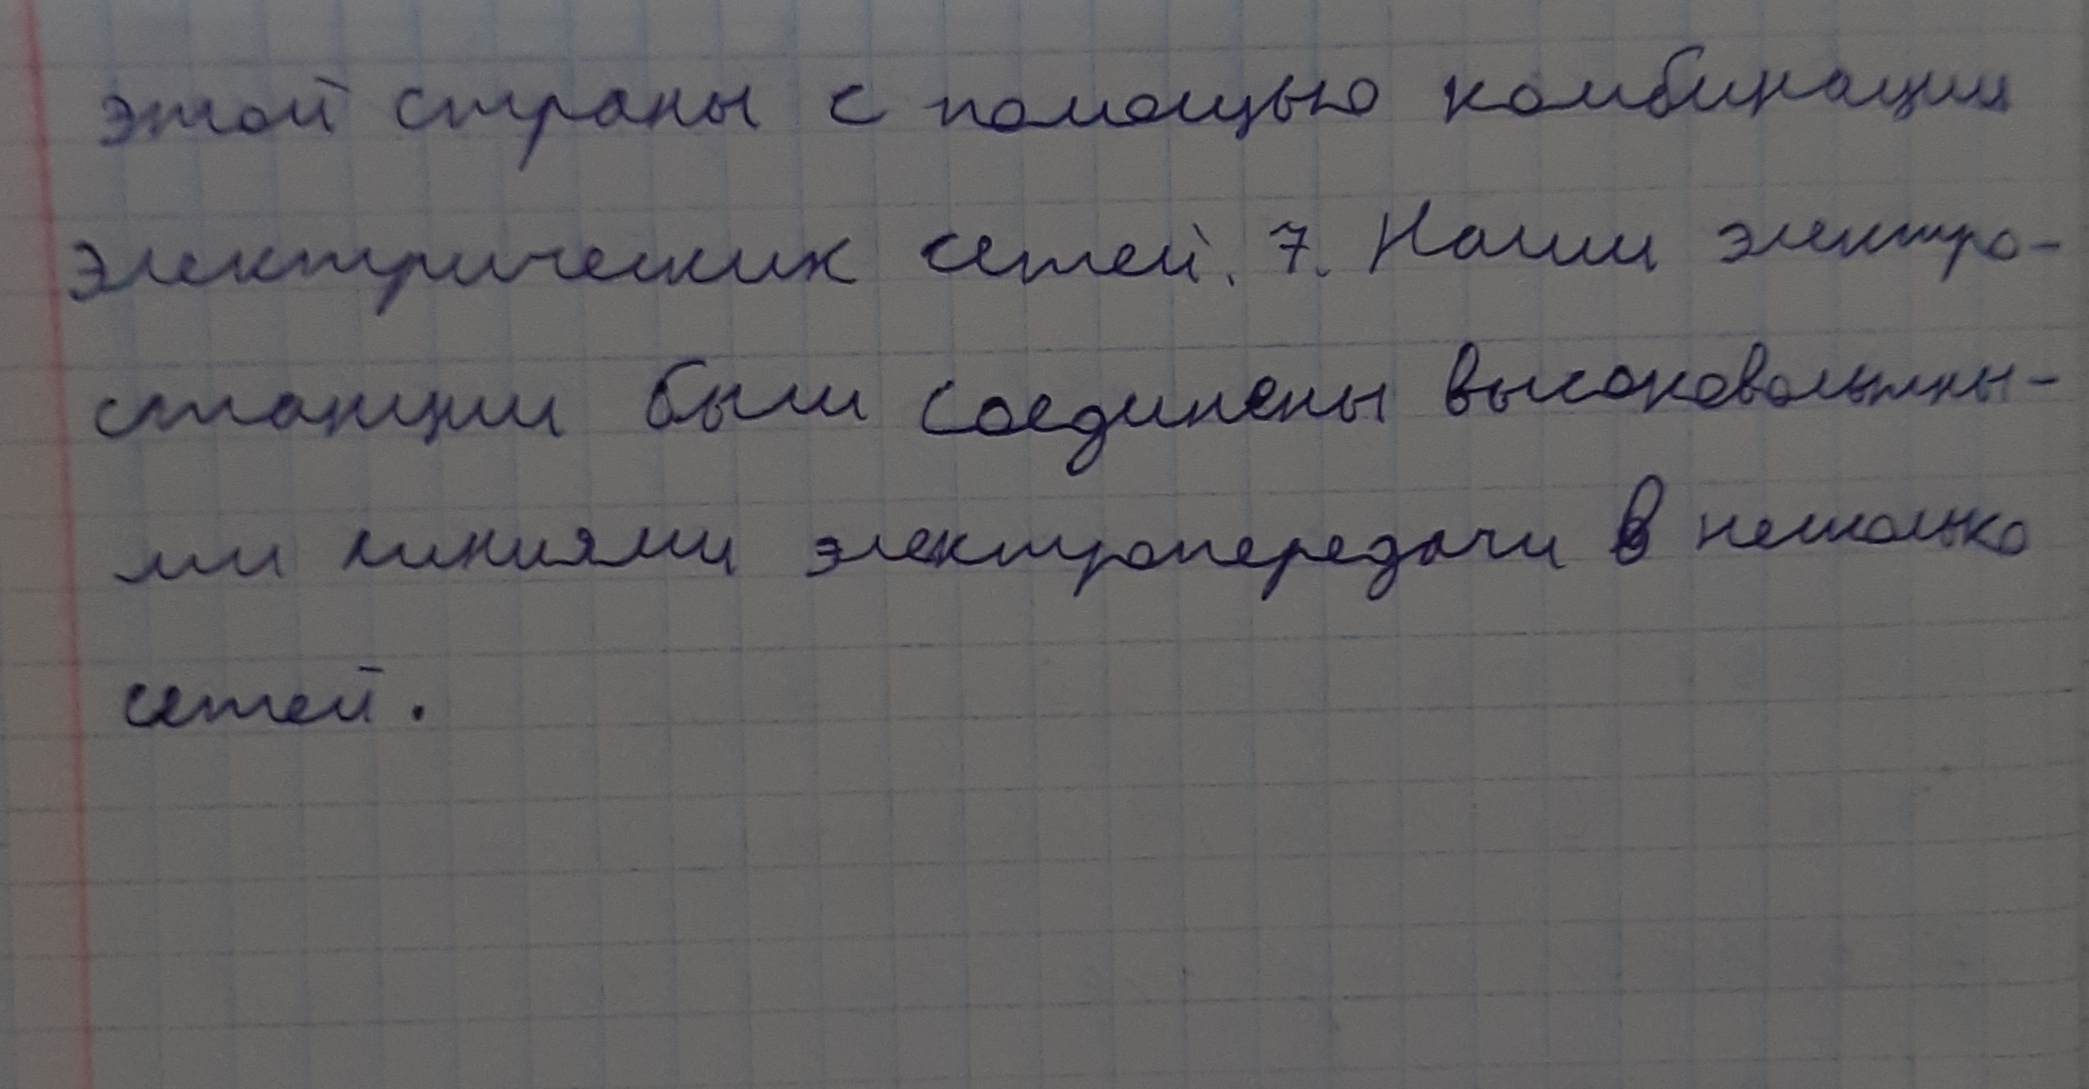 этой страны с помощью комбинации
электрических сетей. 7. Наши электро-
станции были соединены высоковольтны-
ми линиями электропередачи в несколько
сетей.